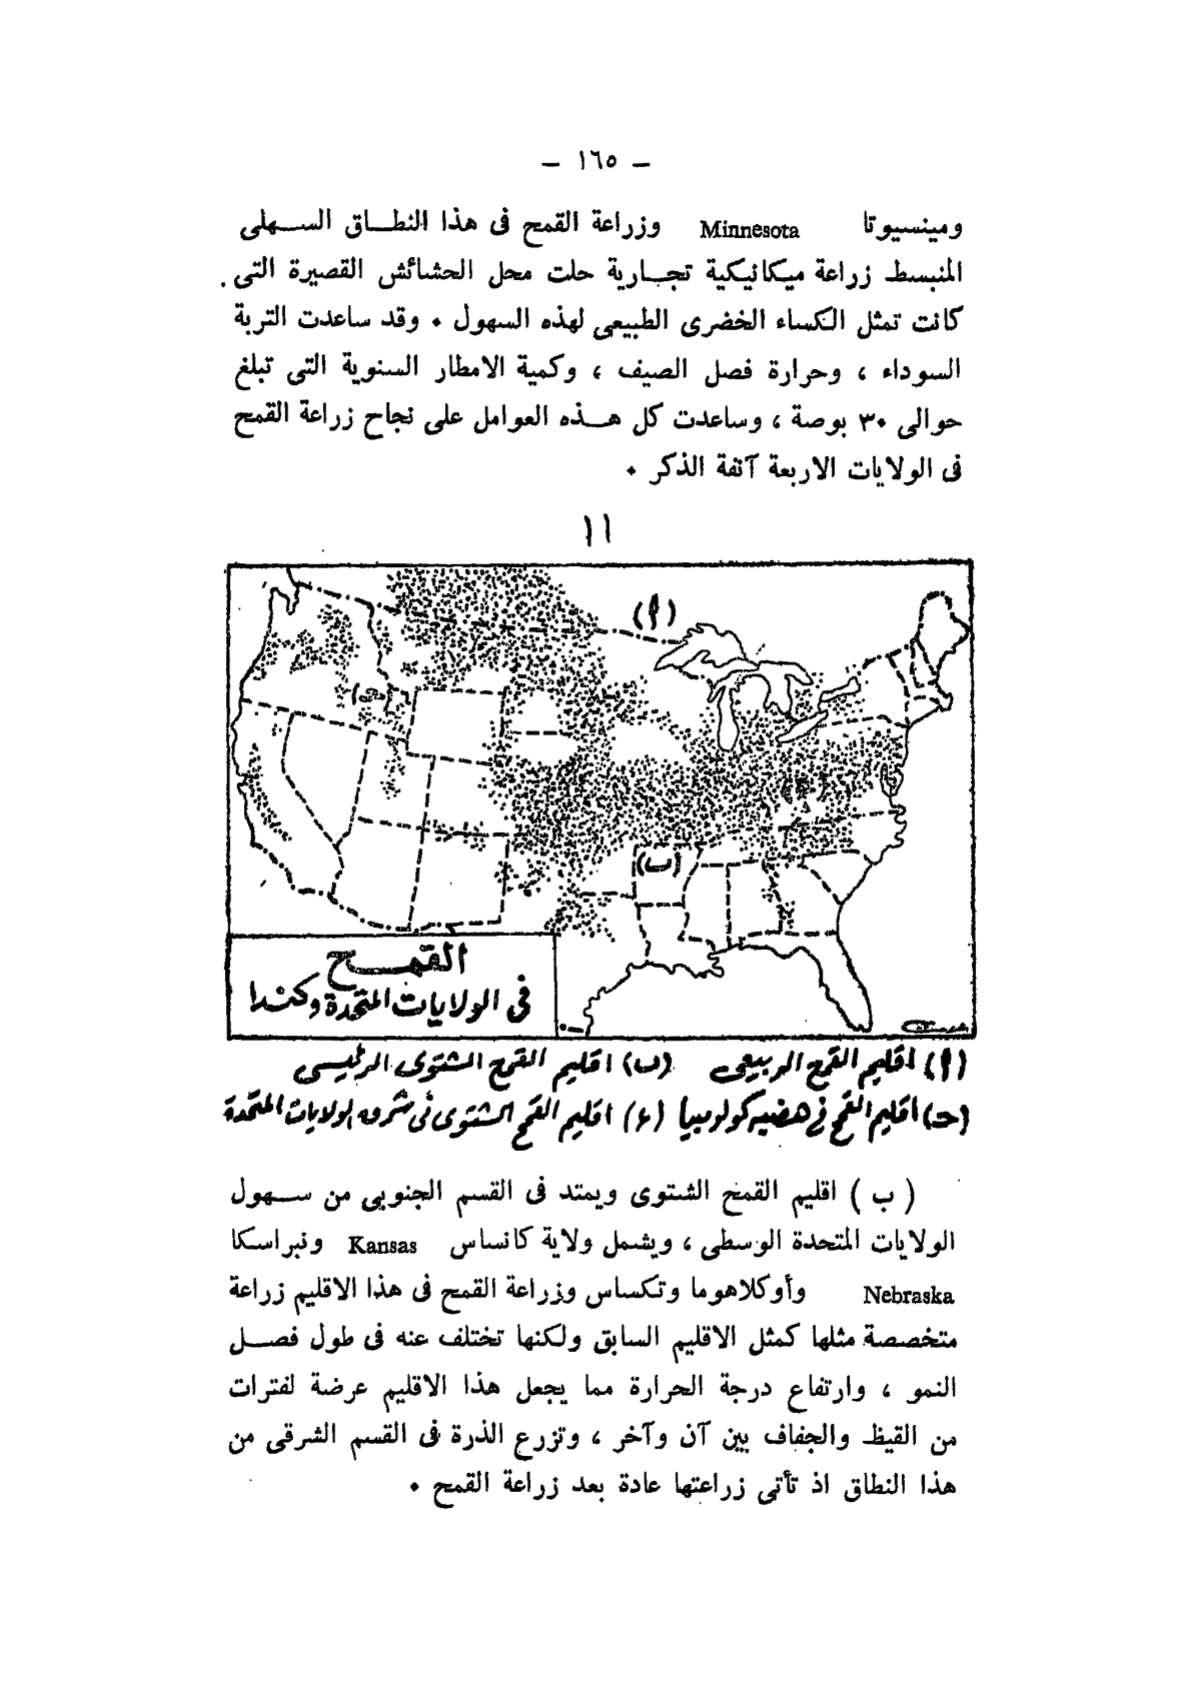 — ١٦٥ —
ومينسيوتا Minnesota وزراعة القمح فى هذا النطاق السهلى
المنبسط زراعة ميكانيكية تجارية حلت محل الحشائش القصيرة التى
كانت تمثل الكساء الخضرى الطبيعى لهذه السهول ٠ وقد ساعدت التربة
السوداء ، وحرارة فصل الصيف ، وكمية الامطار السنوية التى تبلغ
حوالى ٣٠ بوصة ، وساعدت كل هذه العوامل على نجاح زراعة القمح
فى الولايات الاربعة آنفة الذكر ٠
١١
(أ)
(ح)
(ب)
القمح
فى الولايات المتحدة وكندا
(أ) اقليم القمح الربيعى (ب) اقليم القمح الشتوى الرئيسى
(ح) اقليم القمح فى هضبة كولومبيا (ء) اقليم القمح الشتوى فى شرق الولايات المتحدة
( ب ) اقليم القمح الشتوى ويمتد فى القسم الجنوبى من سهول
الولايات المتحدة الوسطى ، ويشمل ولاية كانساس Kansas ونبراسكا
Nebraska وأوكلاهوما وتكساس وزراعة القمح فى هذا الاقليم زراعة
متخصصة مثلها كمثل الاقليم السابق ولكنها تختلف عنه فى طول فصل
النمو ، وارتفاع درجة الحرارة مما يجعل هذا الاقليم عرضة لفترات
من القيظ والجفاف بين آن وآخر ، وتزرع الذرة فى القسم الشرقى من
هذا النطاق اذ تأتى زراعتها عادة بعد زراعة القمح ٠